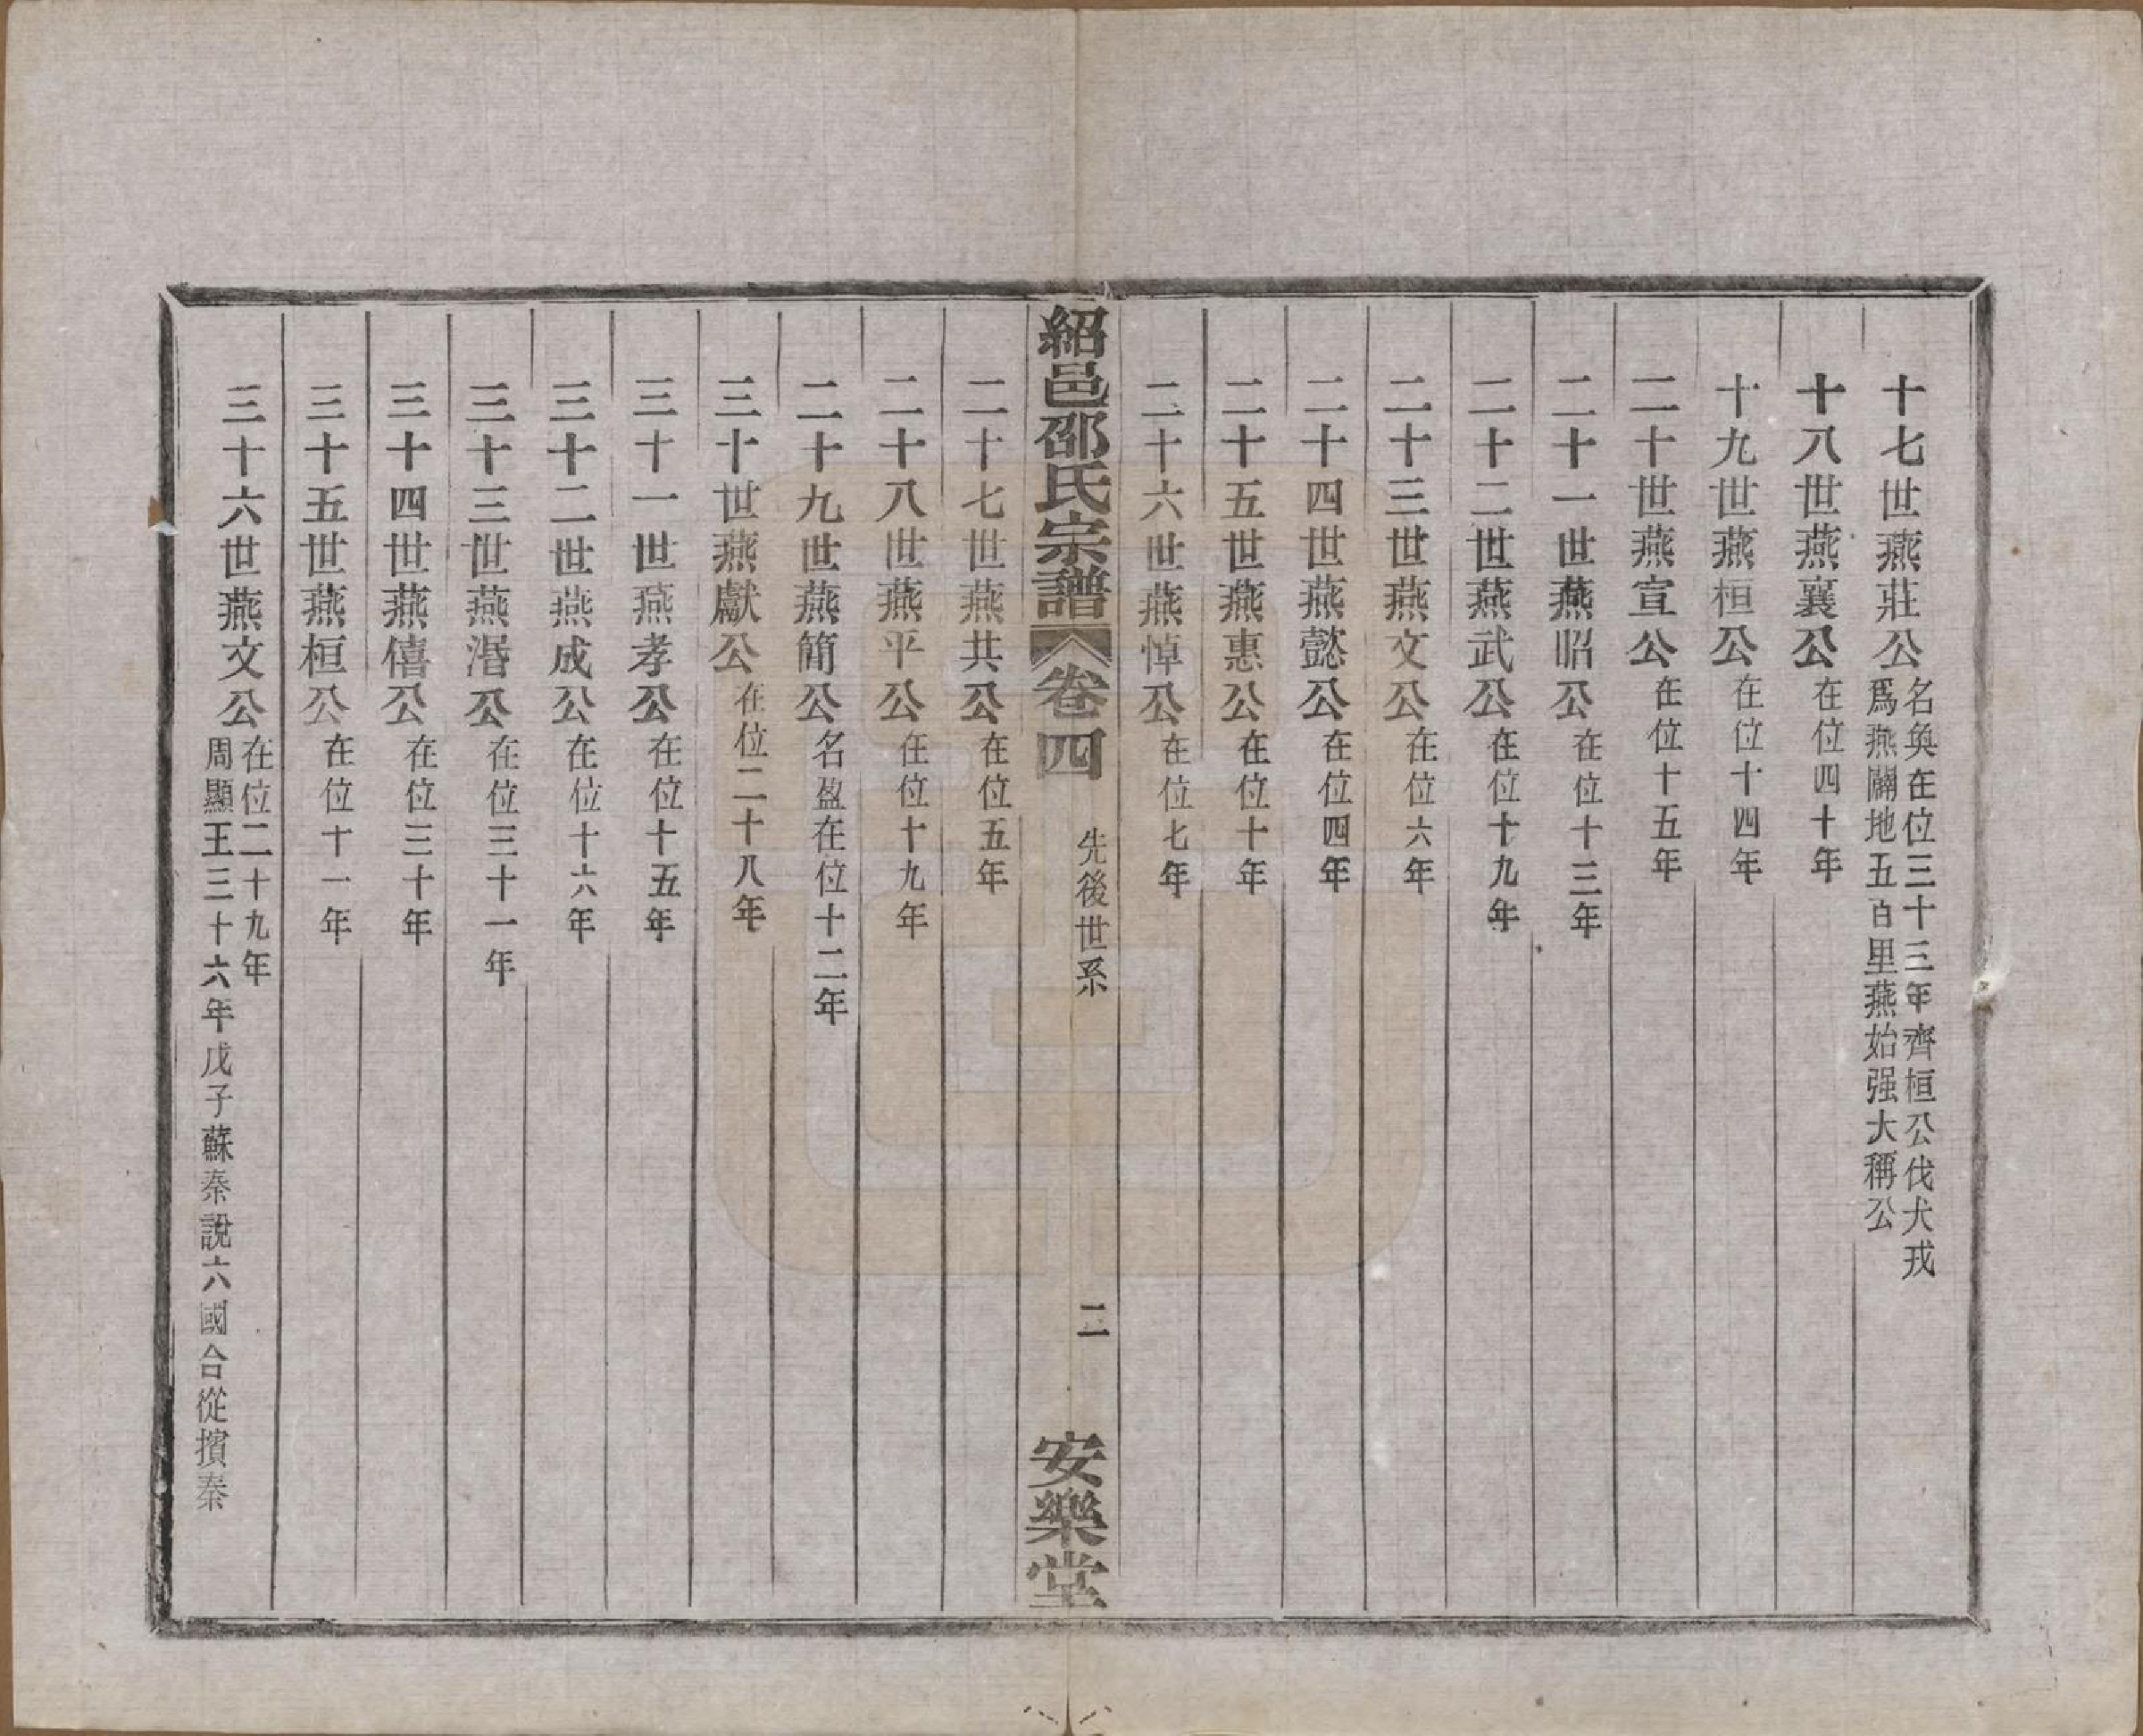 十七世燕莊公名奐在位三十三年齊桓公伐犬戎
爲燕闢地五百里燕始强大稱公
十八世燕襄公在位四十年
十九世燕桓公在位十四年
二十世燕宣公在位十五年
二十一世燕昭公在位十三年
二十二世燕武公在位十九年
二十三世燕文公在位六年
二十四世燕懿公在位四年
二十五世燕惠公在位十年
二十六世燕悼公在位七年
紹邑邵氏宗譜 卷四 先後世系 二 安樂堂
二十七世燕共公在位五年
二十八世燕平公在位十九年
二十九世燕簡公名盈在位十二年
三十世燕獻公在位二十八年
三十一世燕孝公在位十五年
三十二世燕成公在位十六年
三十三世燕湣公在位三十一年
三十四世燕僖公在位三十年
三十五世燕桓公在位十一年
三十六世燕文公在位二十九年
周顯王三十六年戊子蘇秦說六國合從擯秦